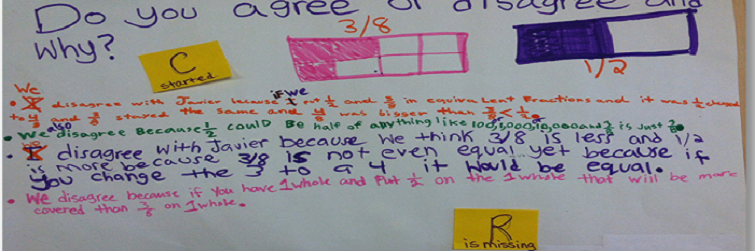 Do you agree or disagree and
why?
3/8
1/2
C
started
We
• disagree with Javier because if we put 1/2 and 3/8 in equivalent fractions and it was 1/2 changed
to 4/8 and 3/8 stayed the same and 4/8 was bigger than 3/8 < 1/2.
• We also disagree Because 1/2 could Be half of anything like 100,1,000,10,000 and 3/8 is Just 3/8.
• disagree with Javier because we think 3/8 is less and 1/2
is more because 3/8 is not even equal yet because if
you change the 3 to a 4 it would be equal.
• We disagree because if you have 1 whole and Put 1/2 on the 1 whole that will be more
covered than 3/8 on 1 whole.
R
is missing